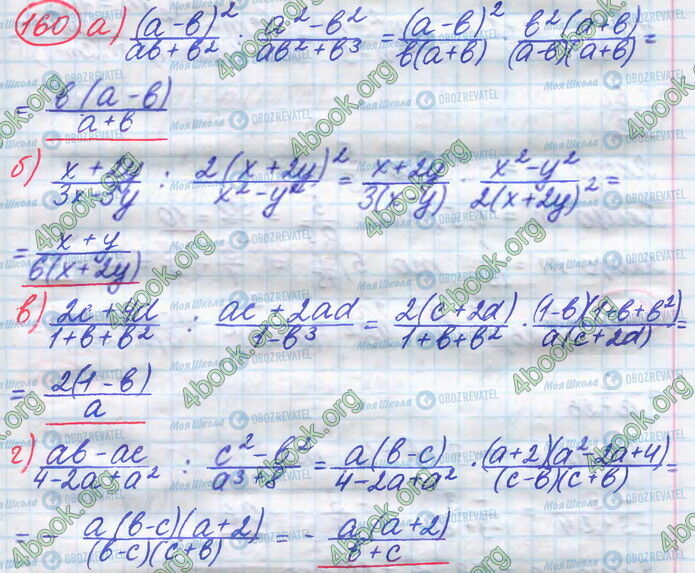 160 а) (a-b)²/(ab+b²) : (a²-b²)/(ab²+b³) = (a-b)²/(b(a+b)) · b²(a+b)/((a-b)(a+b)) =
= b(a-b)/(a+b)
б) (x+2y)/(3x-3y) : 2(x+2y)²/(x²-y²) = (x+2y)/(3(x-y)) · (x²-y²)/(2(x+2y)²) =
= (x+y)/(6(x+2y))
в) (2c+4d)/(1+b+b²) : (ac+2ad)/(1-b³) = 2(c+2d)/(1+b+b²) · (1-b)(1+b+b²)/(a(c+2d)) =
= 2(1-b)/a
г) (ab-ac)/(4-2a+a²) : (c²-b²)/(a³+8) = a(b-c)/(4-2a+a²) · (a+2)(a²-2a+4)/((c-b)(c+b)) =
= - a(b-c)(a+2)/((b-c)(c+b)) = - a(a+2)/(b+c)
4book.org
МояШкола
OBOZREVATEL